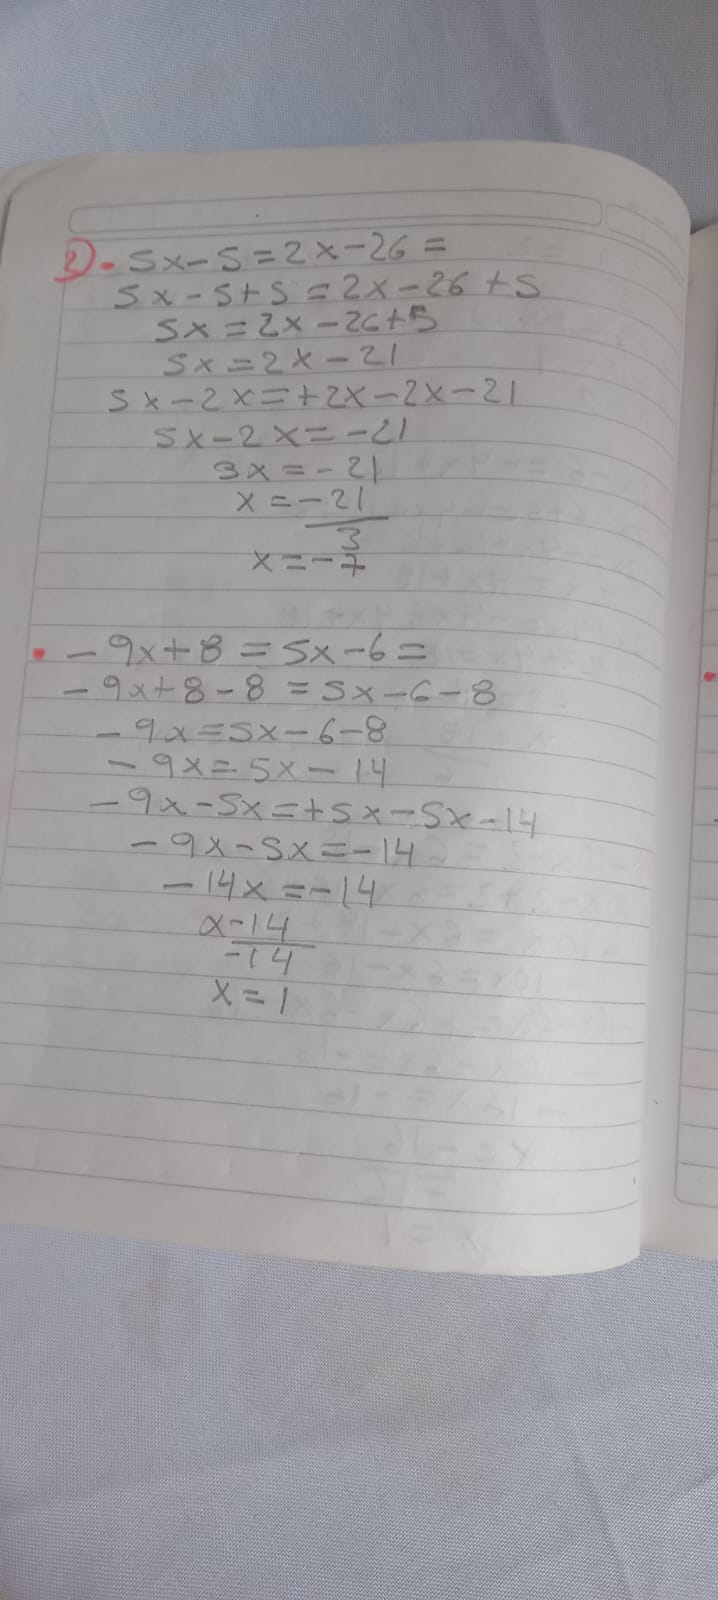 2) · 5x-5=2x-26=
5x-5+5=2x-26+5
5x=2x-26+5
5x=2x-21
5x-2x=+2x-2x-21
5x-2x=-21
3x=-21
x=-21
3
x=-7
· -9x+8=5x-6=
-9x+8-8=5x-6-8
-9x=5x-6-8
-9x=5x-14
-9x-5x=+5x-5x-14
-9x-5x=-14
-14x=-14
x-14
-14
x=1